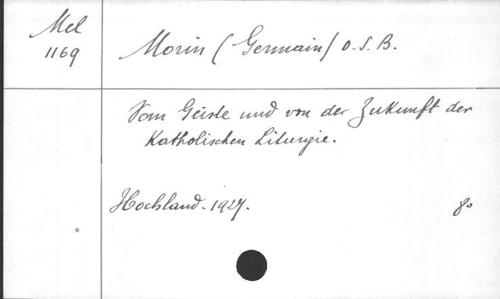 Mel
1169
Morin (Germain) O.S.B.
Vom Geiste und von der Zukunft der
Katholischen Liturgie.
Hochland. 1927. 8o